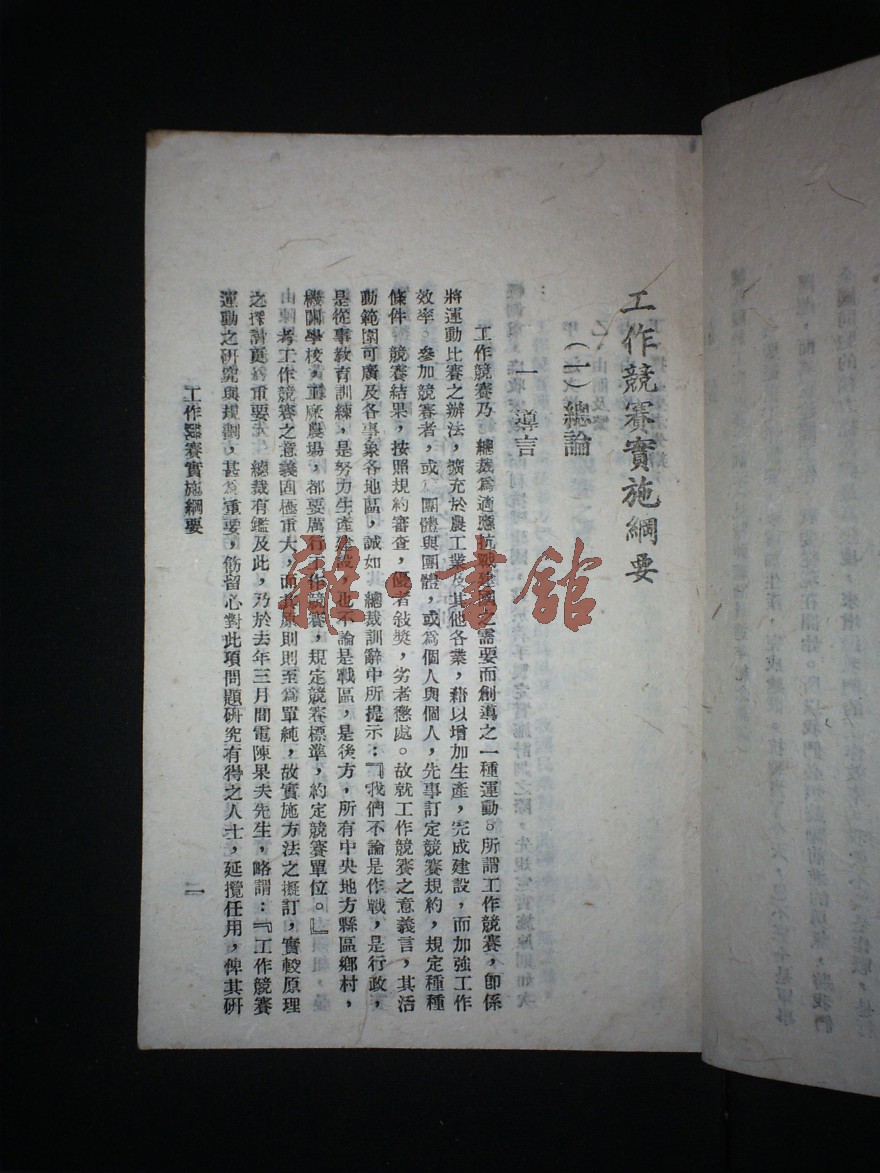 工作競賽實施綱要
（一）總論
一　導言
工作競賽乃　總裁爲適應抗戰建國之需要而創導之一種運動。所謂工作競賽，卽係
將運動比賽之辦法，擴充於農工業及其他各業，藉以增加生產，完成建設，而加強工作
效率。參加競賽者，或團體與團體，或爲個人與個人，先事訂定競賽規約，規定種種
條件，競賽結果，按照規約審查，優者敍獎，劣者懲處。故就工作競賽之意義言，其活
動範圍可廣及各事象各地區，誠如　總裁訓辭中所提示：『我們不論是作戰，是行政，
是從事敎育訓練，是努力生產建設，也不論是戰區，是後方，所有中央地方縣區鄉村，
機關學校，工廠農場，都要厲行工作競賽，規定競賽標準，約定競賽單位。』
考工作競賽之意義固極重大，而其原則則至爲單純，故實施方法之擬訂，實較原理
之探討更爲重要。　總裁有鑑及此，乃於去年三月間電陳果夫先生，略謂：『工作競賽
運動之研究與規劃，甚爲重要，務留心對此項問題研究有得之人士，延攬任用，俾其研
工作競賽實施綱要
雜·書館